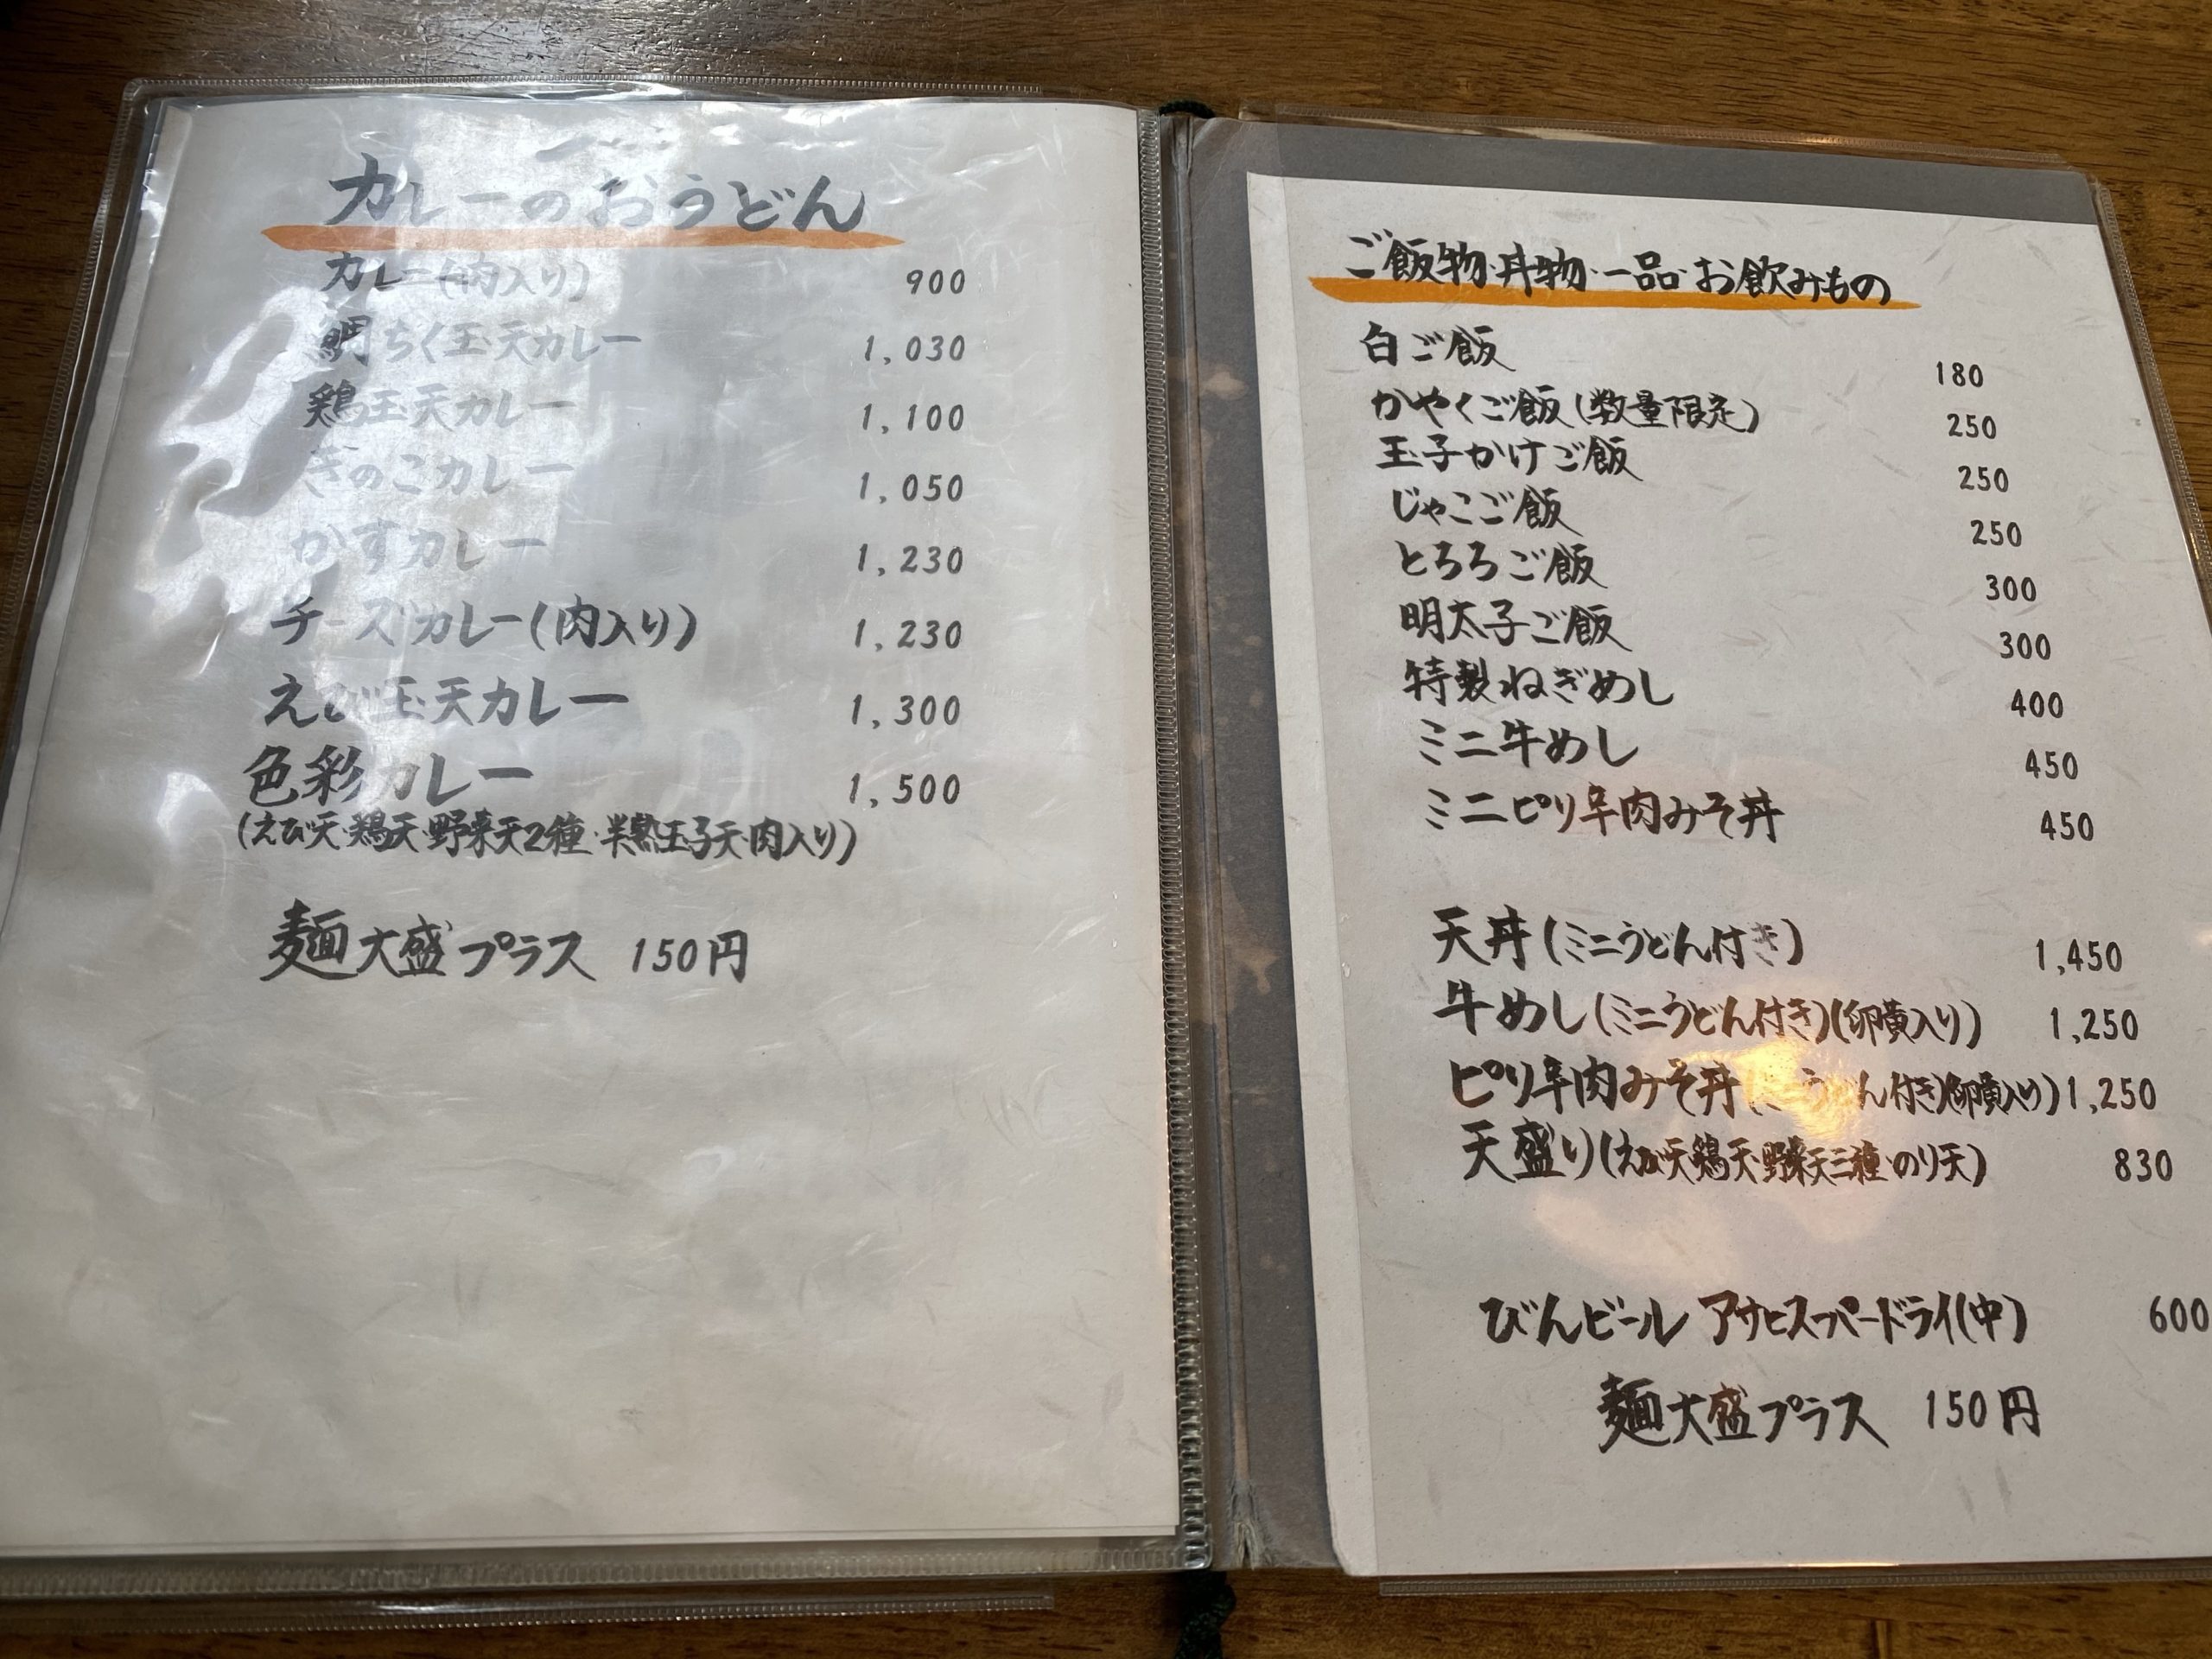 カレーのおうどん
カレー(肉入り) 900
鯛ちく玉天カレー 1,030
鶏玉天カレー 1,100
きのこカレー 1,050
かすカレー 1,230
チーズカレー(肉入り) 1,230
えび玉天カレー 1,300
色彩カレー 1,500
(えび天・鶏天・野菜天2種・半熟玉子天・肉入り)
麺大盛プラス 150円
ご飯物・丼物・一品・お飲みもの
白ご飯 180
かやくご飯(数量限定) 250
玉子かけご飯 250
じゃこご飯 250
とろろご飯 300
明太子ご飯 300
特製ねぎめし 400
ミニ牛めし 450
ミニピリ辛肉みそ丼 450
天丼(ミニうどん付き) 1,450
牛めし(ミニうどん付き)(卵黄入り) 1,250
ピリ辛肉みそ丼(ミニうどん付き)(卵黄入り) 1,250
天盛り(えび天・鶏天・野菜天三種・のり天) 830
びんビール アサヒスーパードライ(中) 600
麺大盛プラス 150円